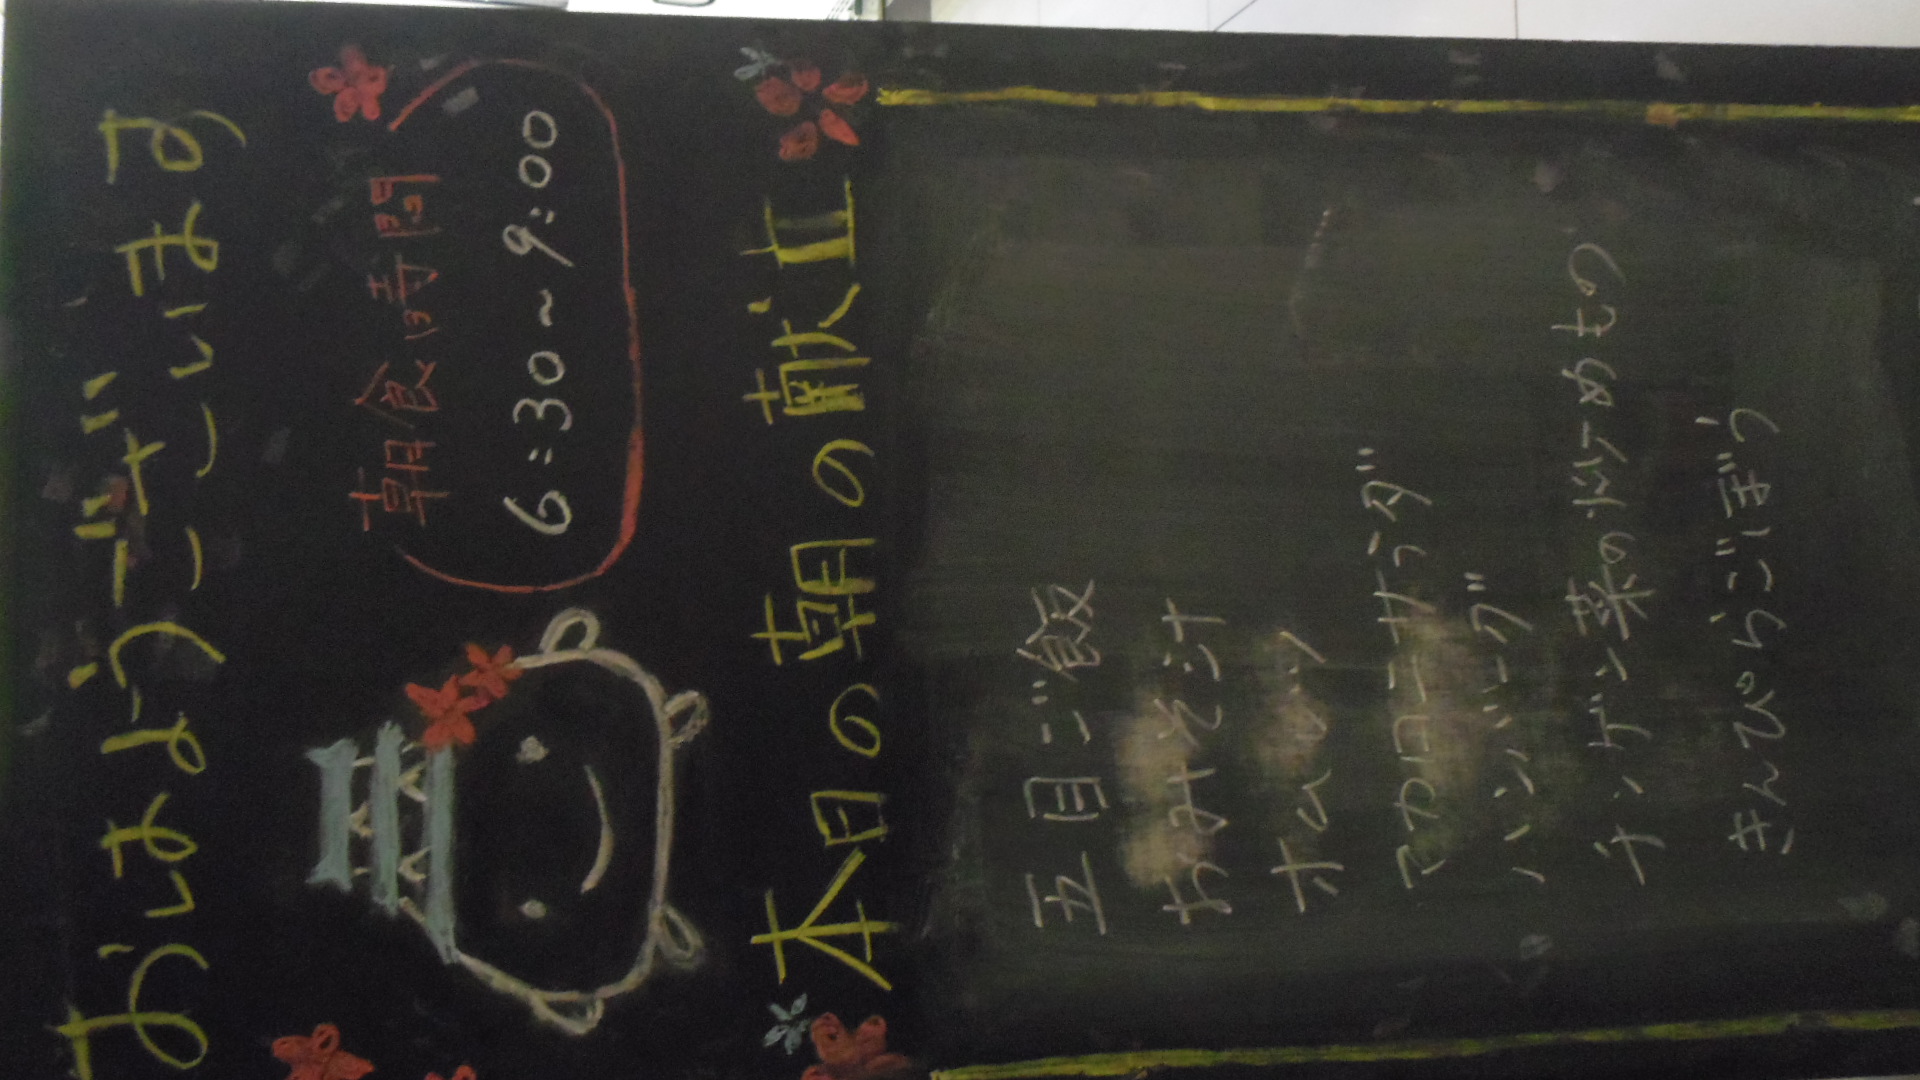 おはようございます
朝食時間
6:30~9:00
本日の朝の献立
五目ご飯
おみそ汁
オムレツ
マカロニサラダ
ハンバーグ
チンゲン菜の炒めもの
きんぴらごぼう